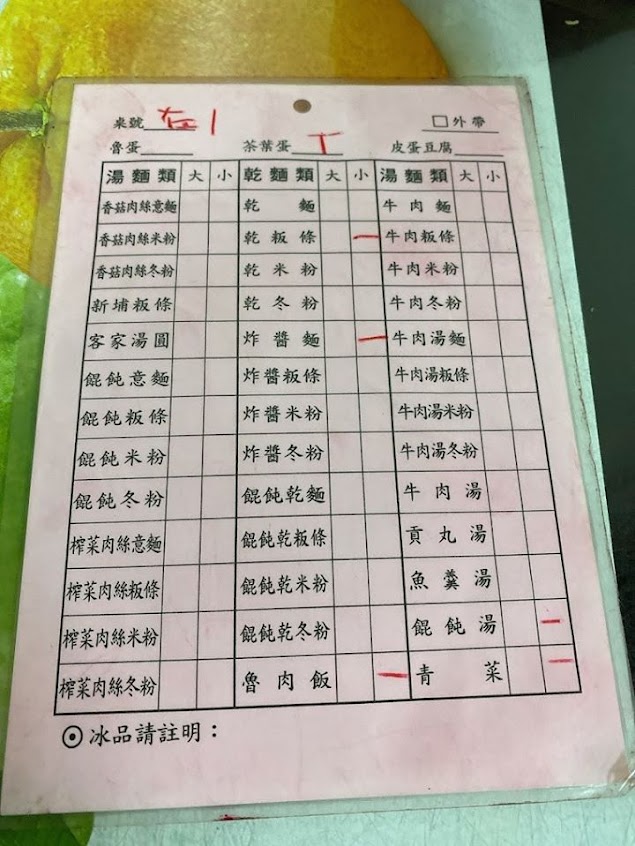 桌號 左1 □外帶
魯蛋 茶葉蛋 一 皮蛋豆腐
湯麵類 大 小 乾麵類 大 小 湯麵類 大 小
香菇肉絲意麵 乾麵 牛肉麵
香菇肉絲米粉 乾粄條 一 牛肉粄條
香菇肉絲冬粉 乾米粉 牛肉米粉
新埔粄條 乾冬粉 牛肉冬粉
客家湯圓 炸醬麵 一 牛肉湯麵
餛飩意麵 炸醬粄條 牛肉湯粄條
餛飩粄條 炸醬米粉 牛肉湯米粉
餛飩米粉 炸醬冬粉 牛肉湯冬粉
餛飩冬粉 餛飩乾麵 牛肉湯
榨菜肉絲意麵 餛飩乾粄條 貢丸湯
榨菜肉絲粄條 餛飩乾米粉 魚羹湯
榨菜肉絲米粉 餛飩乾冬粉 餛飩湯 一
榨菜肉絲冬粉 魯肉飯 一 青菜 一
⊙冰品請註明：